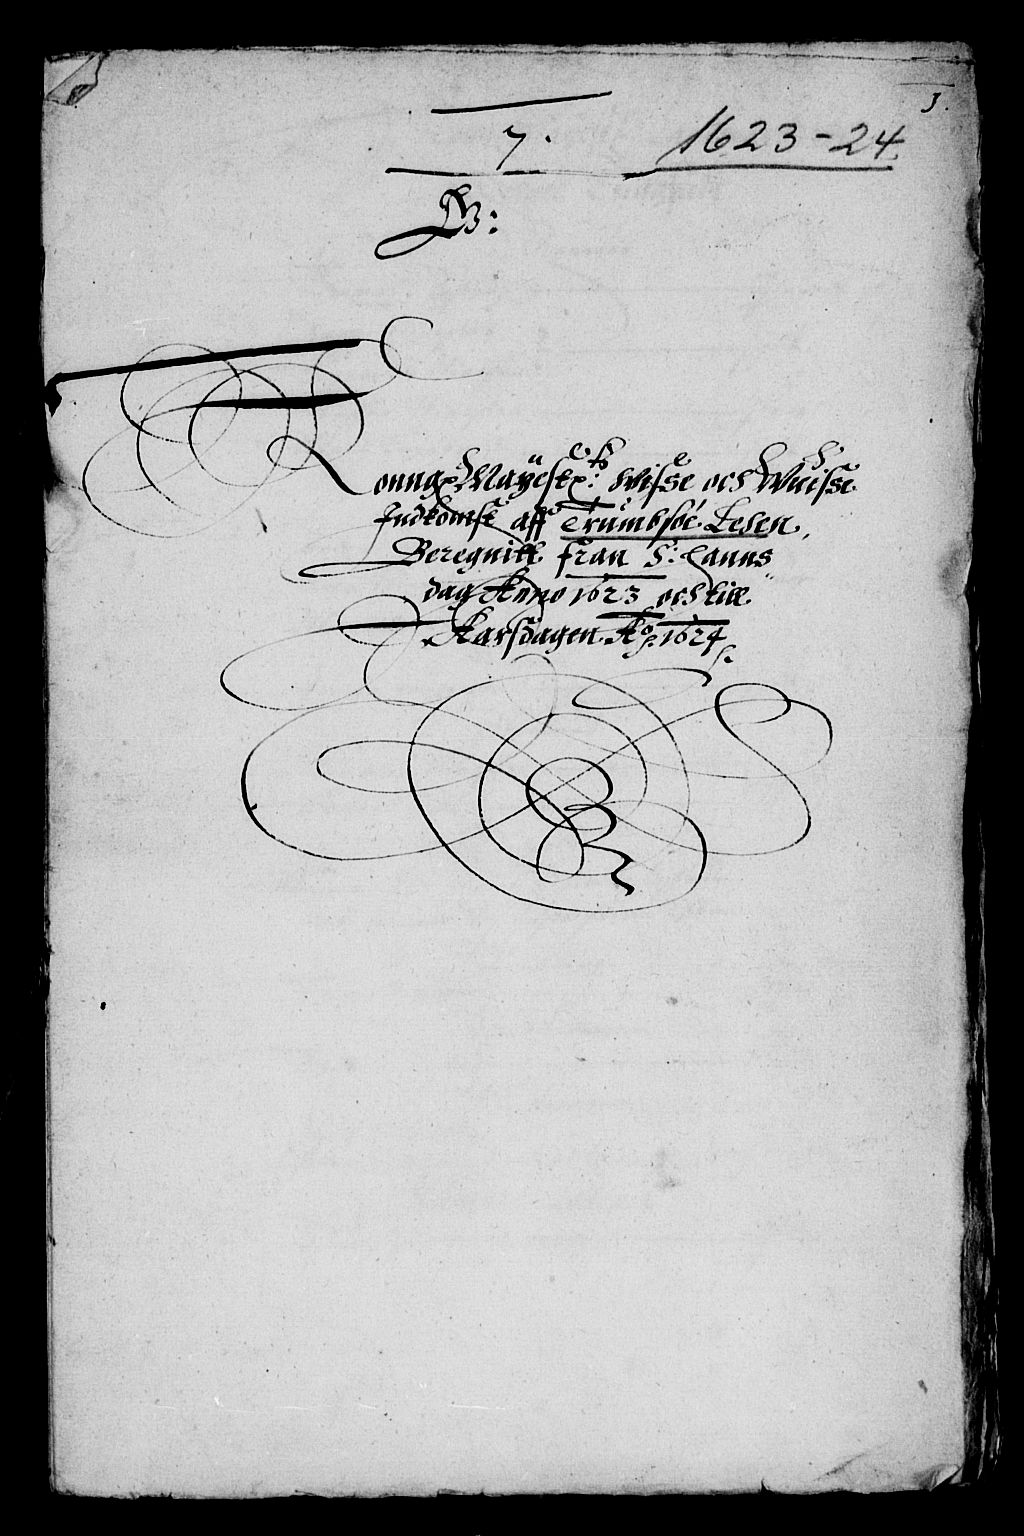 3.
7.
1623-24
B:
Konngr Mayestz: Wisse och Wuisse
Indkomst aff Trumbsøe Lehn,
Beregnitt fran S: Hanns
dag Anno 1623 och till
Aarsdagen Ao 1624